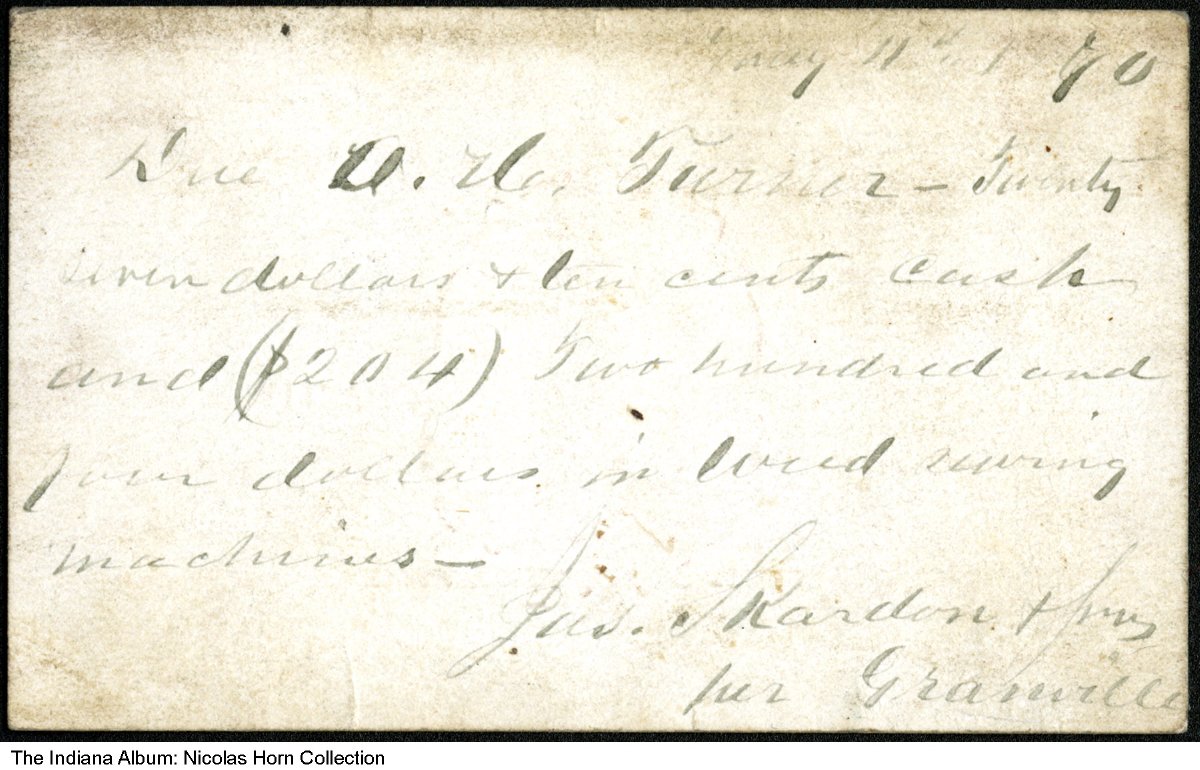 11th 1870
Due A. H. Turner - Twenty
seven dollars & ten cents cash
and ($204) Two hundred and
four dollars in Weed sewing
machines -
Jas. Skardon & Sons
per Granville
The Indiana Album: Nicolas Horn Collection